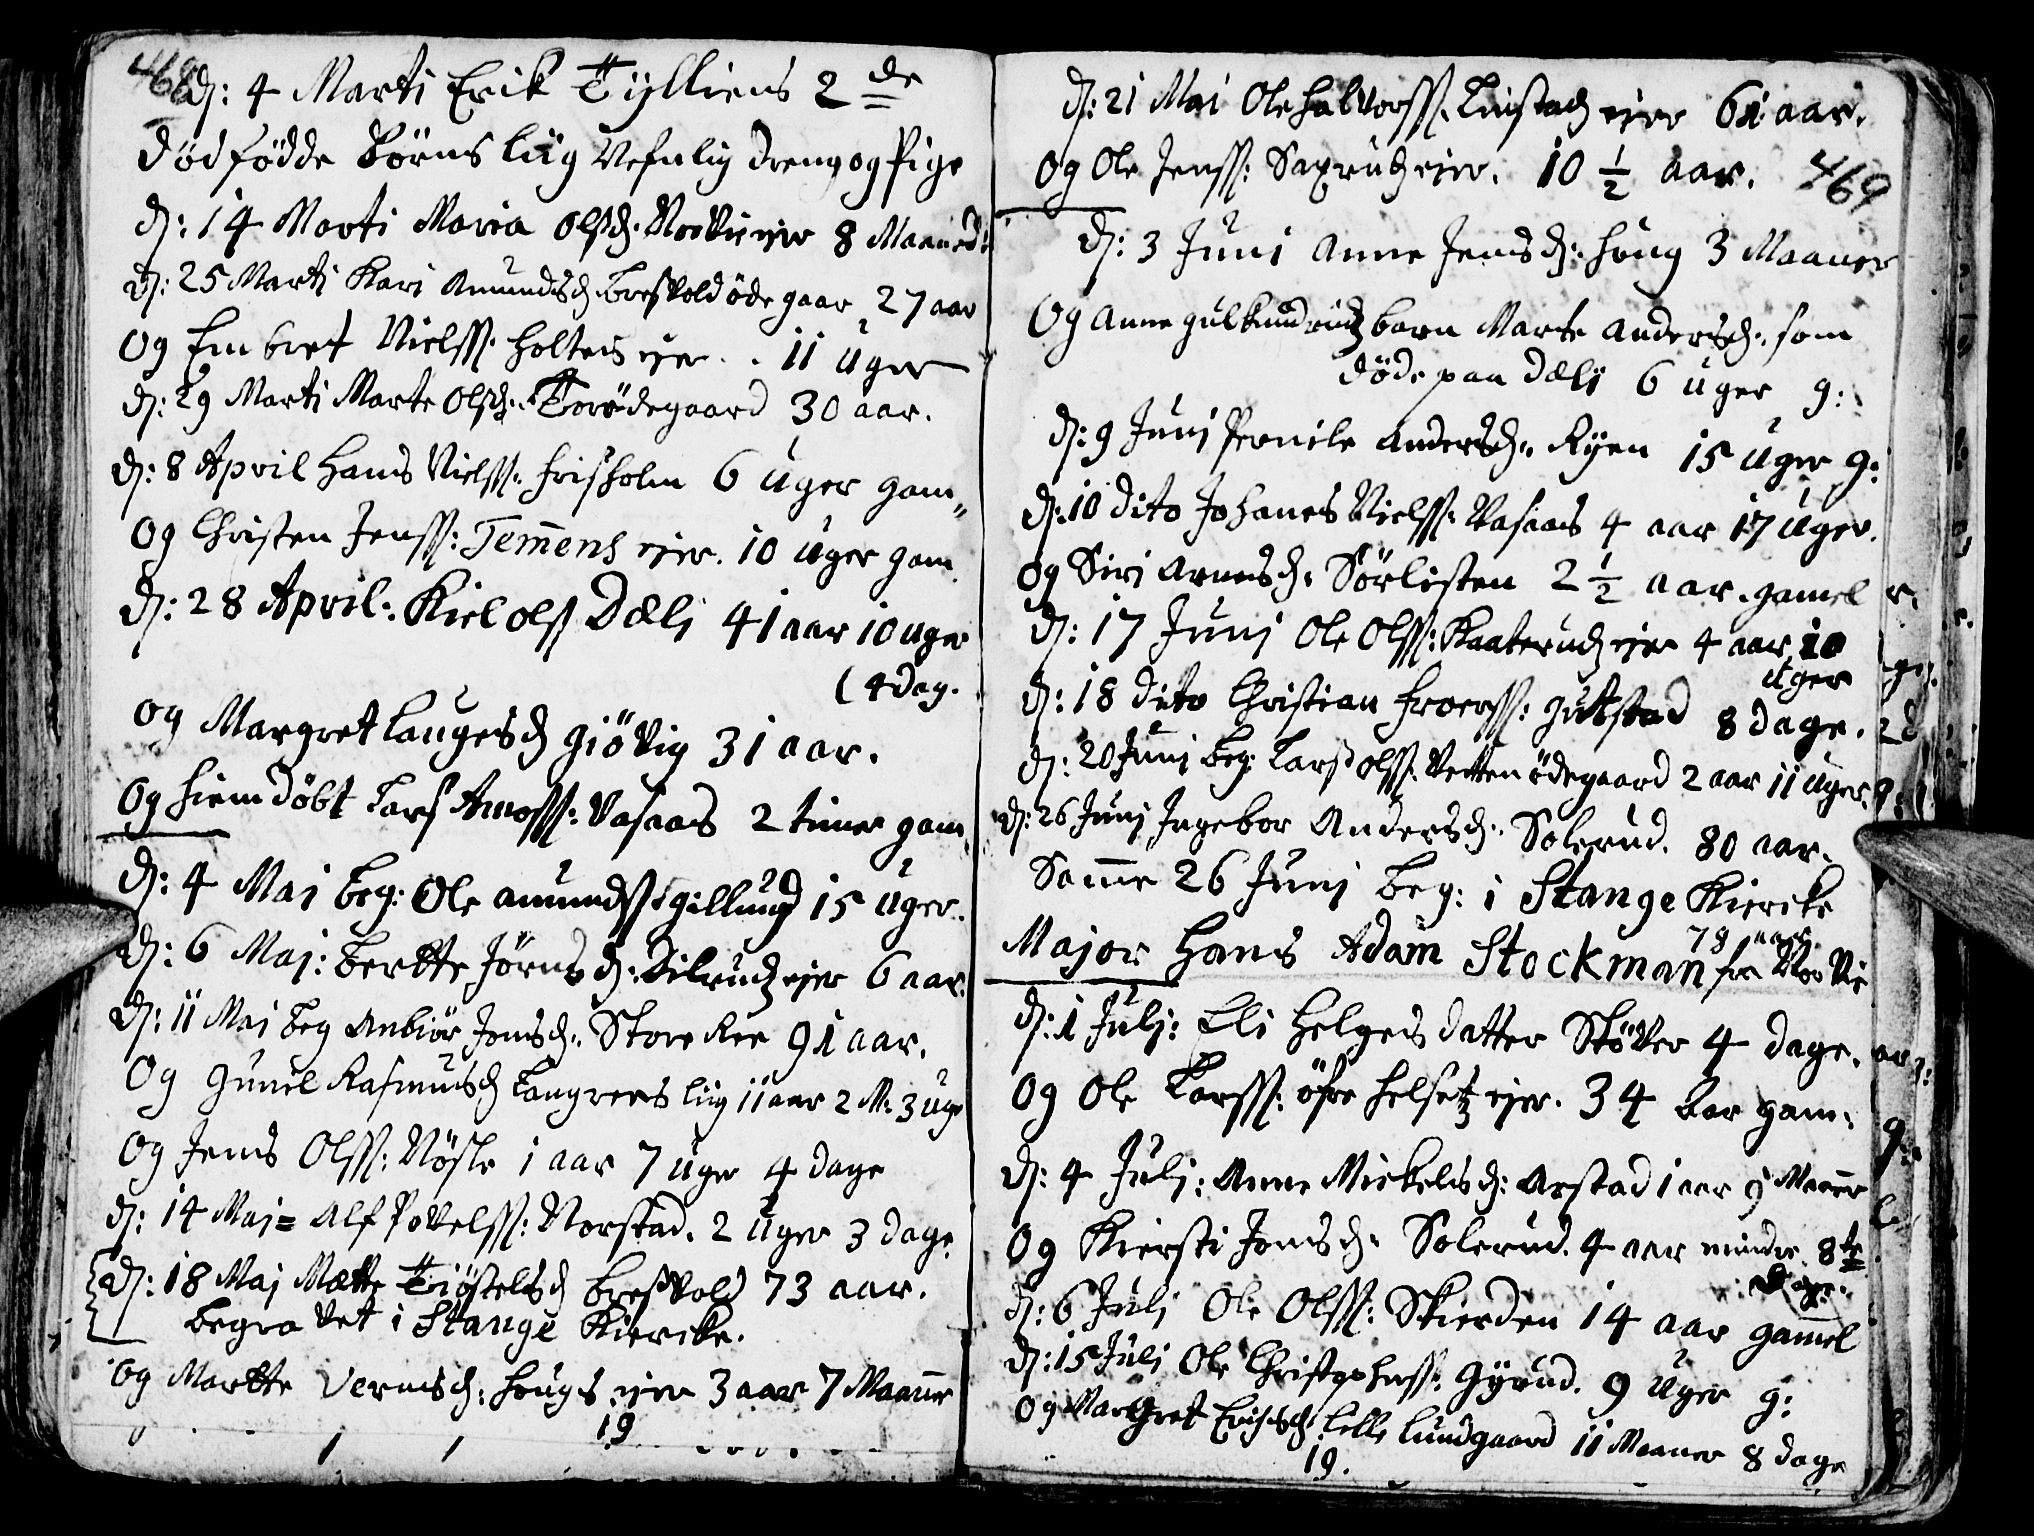 468
d: 4 Marti Erik Tylliens 2 de
dödfödde börns liig Nefnlig dreng og Pige
d: 14 Marti Maria Olsd: Norvie ejer 8 Maaneder
d: 25 Marti Kari Amundsd: ödegaar 27 aar
Og Embret Nielss: holtens ejer . . 11 Uger
d: 29 Marti Marte Olsd: Torödegaard 30 aar.
d: 8 April Hans Nielss: frisholm 6 Uger gam„
Og Christen Jenss: Temens ejer. 10 Uger gam
d: 28 April: Kiel Olss Dæli 41 aar 10 uger
(4 dag.
og Margret Laugesd Giövig 31 aar.
Og hiemdöbt Lars Amoss: Vasaas 2 timer gam.
d: 4 Maj beg: Ole Amundss: gillund 15 Uger.
d: 6 Maj: Berthe Jörnsd: Dilrud ejer 6 aar.
d: 11 Maj beg Anbiör Jonsd: Store Ree 91 aar.
Og Gunil Rasmusd Langrees liig 11 aar 2 M: 3 Uge
Og Jens Olss: Nösle 1 aar 7 Uger 4 dage
d: 14 Maj= Alf Povelss: Norstad. 2 Uger 3 dage
d: 18 Maj Mætte Tiöstelsd Bresvold 73 aar.
begravet i Stange Kiercke.
og Marthe Vermsd: Hougs ejer 3 aar 7 Maaner
19
d: 21 Mai Ole Halvorss: Linstad ejer 61 aar.
Og Ole Jenss: Saxrud ejer. 10 1/2 aar.
469
d: 3 Juni Anne Jensd: Houg 3 Maaner
Og Anne Gulkundrud barn Marte Andersd: som
döde paa Dæli 6 uger g:
d: 9 Junj Pernile Andersd: Ryen 15 Uger g:
d: 10 dito Johanes Nielss: Vasaas 4 aar 17 Uger.
Og Siri Arnesd: Sörlisten 2 1/2 aar. gamel
d: 17 Junj Ole Olss: Kaaterud ejer 4 aar 10
Uger
d: 18 dito Christian Froerss: Gulstad 8 dage.
d: 20 Junj beg: Lars Olss: Vettenödegaard 2 aar 11 Uger.
d: 26 Junj Ingebor Andersd: Solerud. 80 aar.
Samme 26 Junj beg: i Stange Kiercke
78 aar
Major Hans Adam Stockman fra Norvie
d: 1 Julj: Eli Helgesdatter Stöver 4 dage.
Og Ole Larss: öfre Helset ejer. 34 aar gam:
d: 4 Julj: Anne Mickelsd: Arstad 1 aar 9 Maaner
Og Kiersti Jonsd: Solerud. 4 aar mindre 8te
Dage.
d: 6 Julj Ole Olss: Skierden 14 aar gamel
d: 15 Julj Ole Christophss: Gyrud. 9 Uger g:
Og Margret Erichsd: Lille Lundgaard 11 Maaner 8 dage
19.